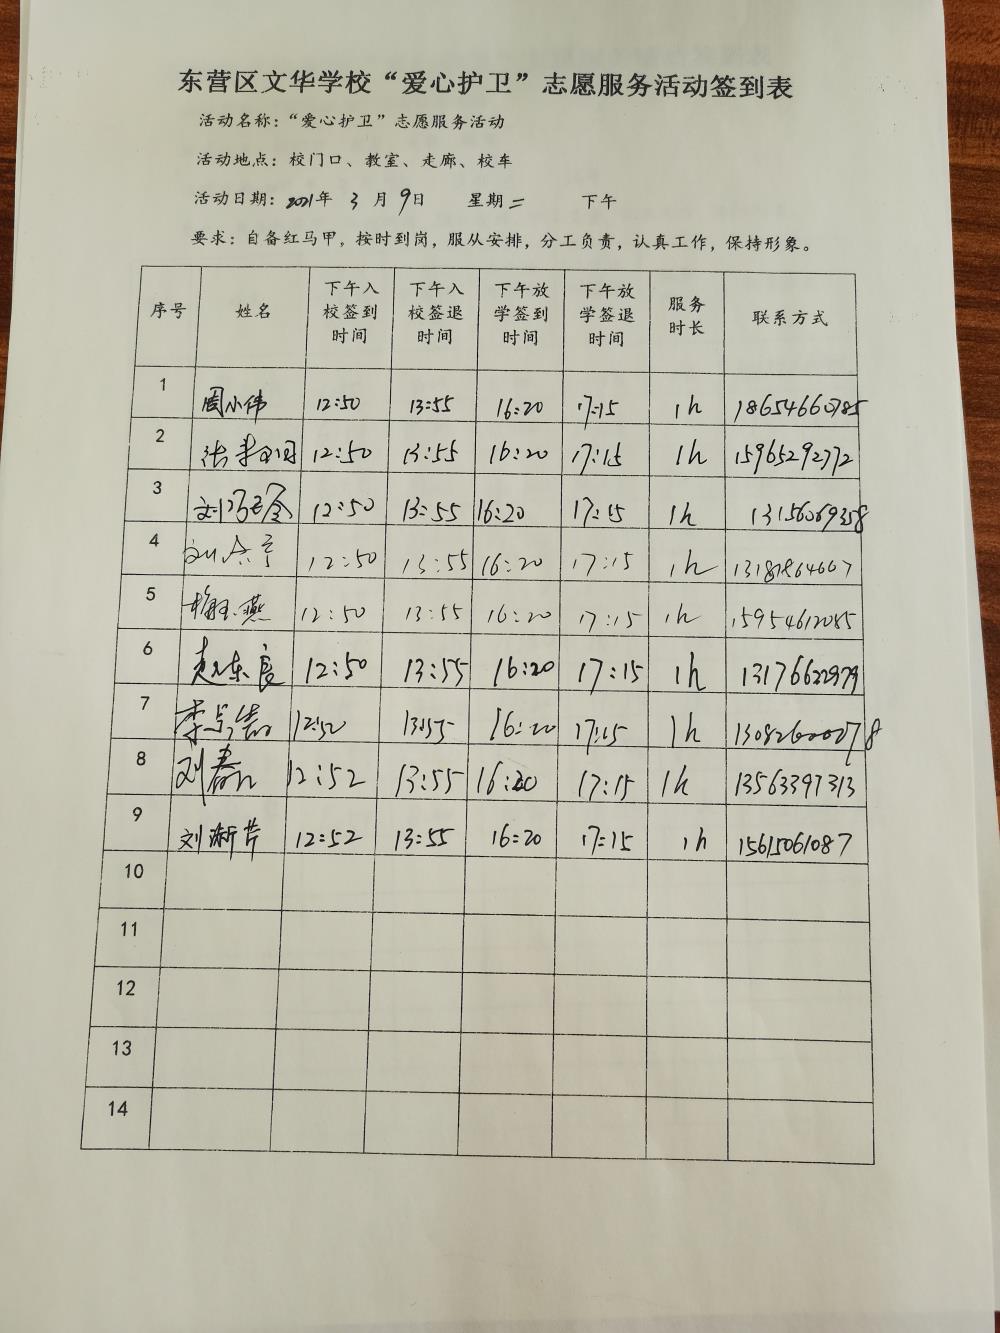 东营区文华学校“爱心护卫”志愿服务活动签到表
活动名称：“爱心护卫”志愿服务活动
活动地点：校门口、教室、走廊、校车
活动日期：2021年 3 月 9日 星期二 下午
要求：自备红马甲，按时到岗，服从安排，分工负责，认真工作，保持形象。
序号 姓名 下午入校签到时间 下午入校签退时间 下午放学签到时间 下午放学签退时间 服务时长 联系方式
1 周小伟 12:50 13:55 16:20 17:15 1h 18654660785
2 12:50 13:55 16:20 17:15 1h 15965292772
3 12:50 13:55 16:20 17:15 1h 13156069358
4 12:50 13:55 16:20 17:15 1h 13181864667
5 12:50 13:55 16:20 17:15 1h 15954612085
6 赵东良 12:50 13:55 16:20 17:15 1h 13176622979
7 12:50 13:55 16:20 17:15 1h 13082600078
8 刘春 12:52 13:55 16:20 17:15 1h 13563397313
9 刘渐芹 12:52 13:55 16:20 17:15 1h 15615061087
10
11
12
13
14